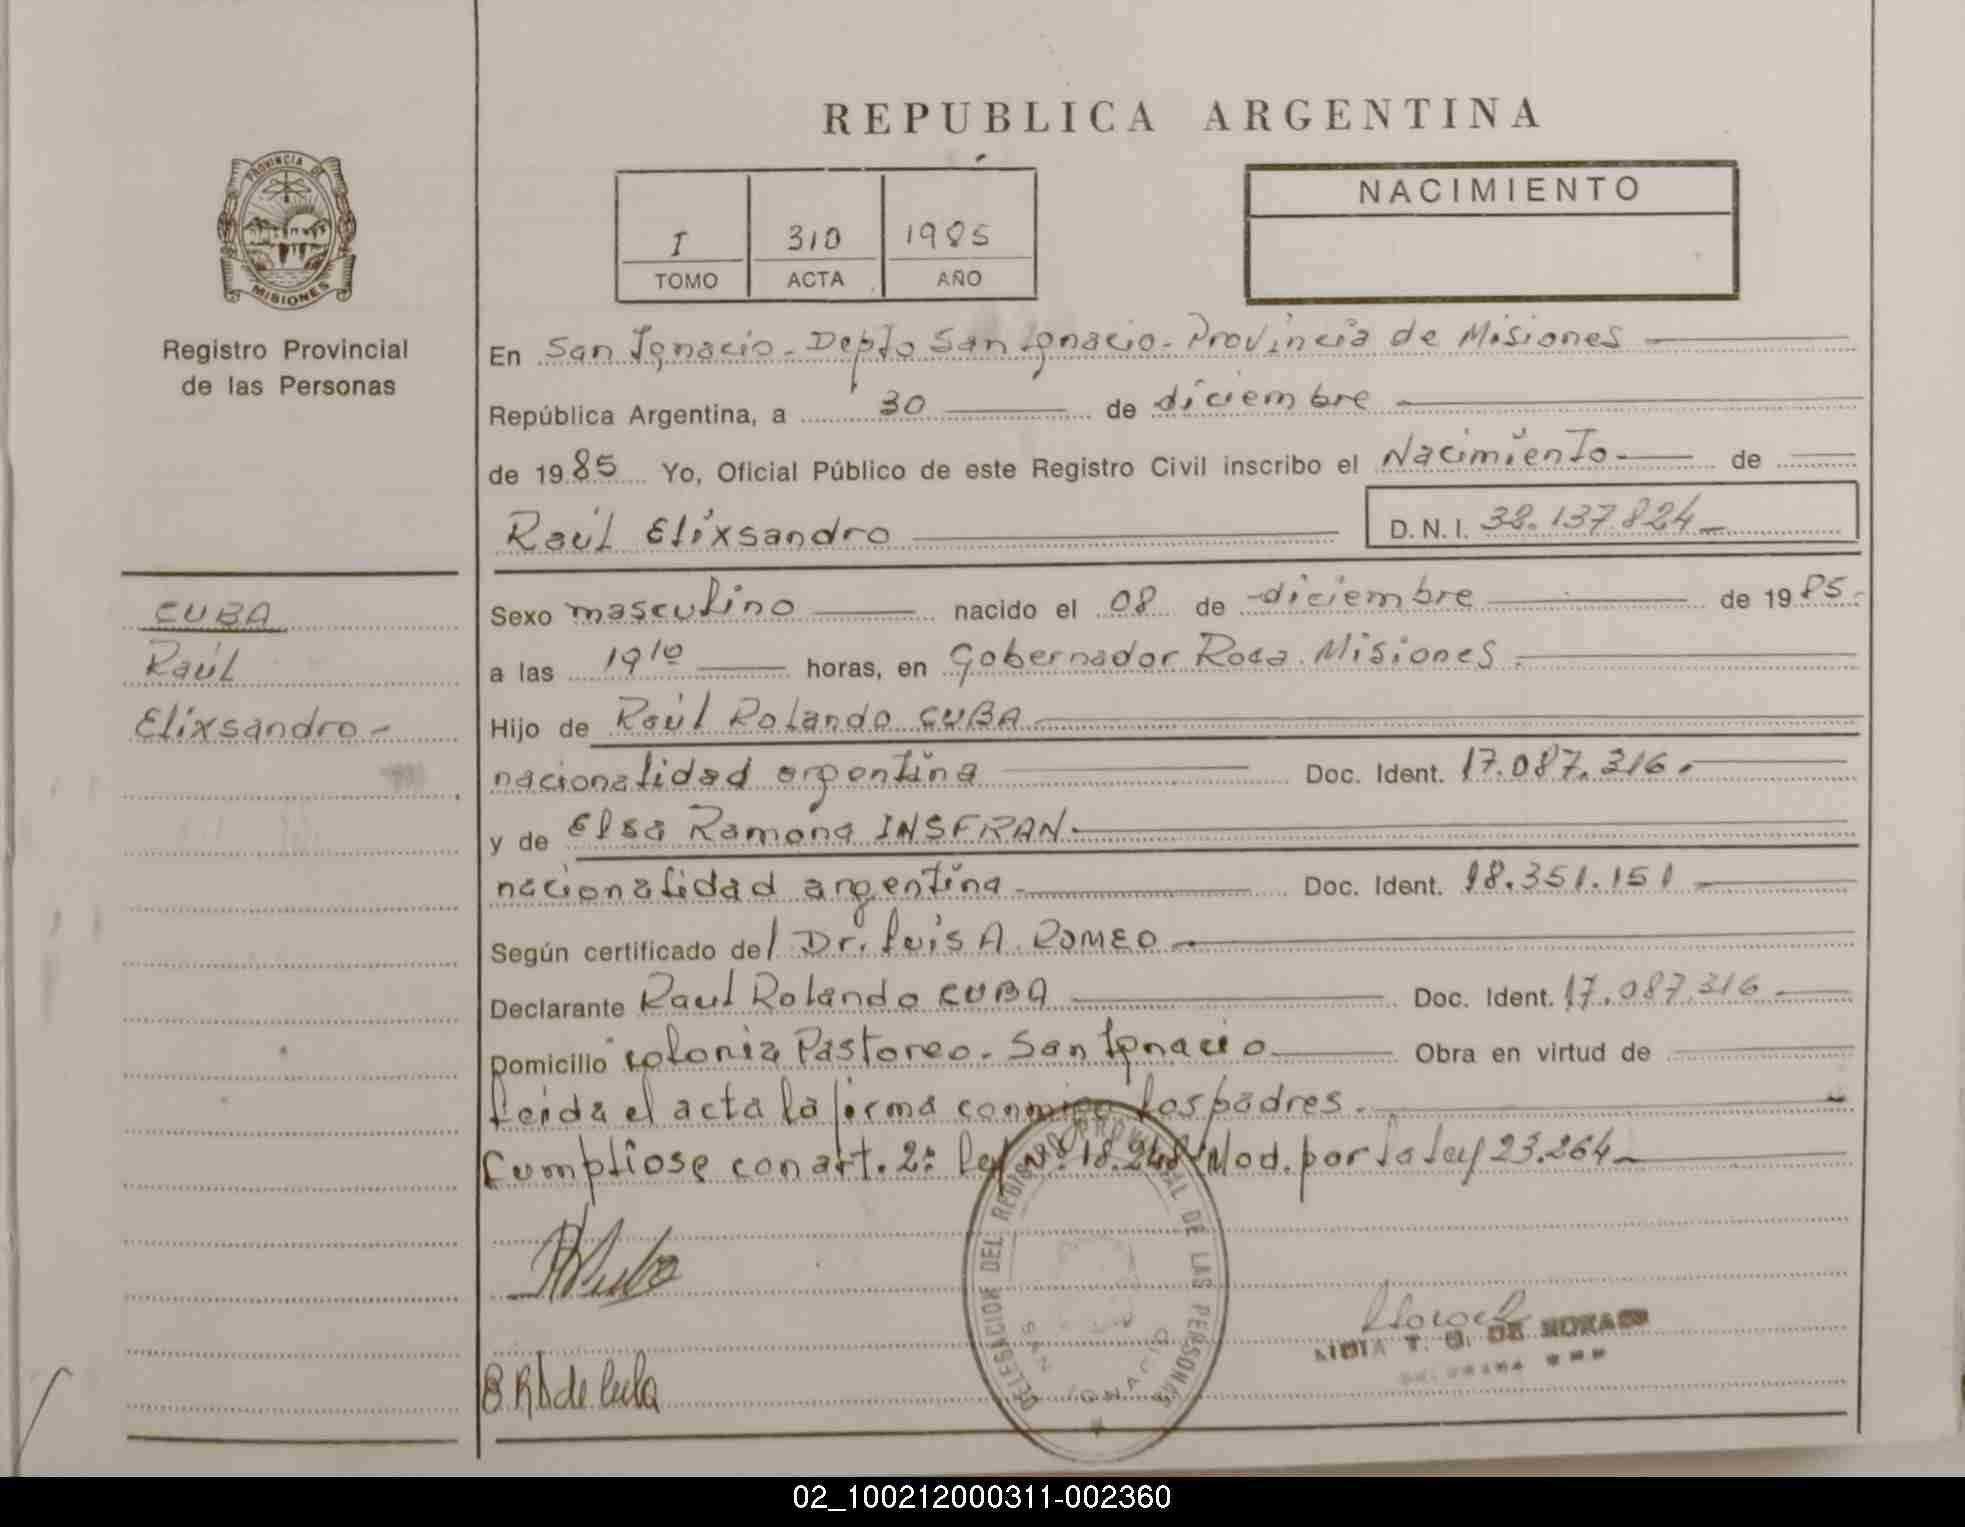 REPUBLICA ARGENTINA
PROVINCIA DE
MISIONES
Registro Provincial
de las Personas
I 310 1985
TOMO ACTA AÑO
NACIMIENTO
En San Ignacio - Depto San Ignacio - Provincia de Misiones
República Argentina, a 30 de diciembre
de 1985 Yo, Oficial Público de este Registro Civil inscribo el Nacimiento de
Raúl Elixsandro D.N.I. 32.137.824
CUBA
Raúl
Elixsandro -
Sexo masculino nacido el 08 de diciembre de 1985.
a las 19 10 horas, en Gobernador Roca. Misiones.
Hijo de Raúl Rolando CUBA
nacionalidad argentina Doc. Ident. 17.087.316.
y de Elsa Ramona INSFRAN.
nacionalidad argentina Doc. Ident. 18.351.151
Según certificado del Dr. Luis A. ROMEO
Declarante Raul Rolando CUBA Doc. Ident. 17.087.316
Domicilio colonia Pastoreo - San Ignacio Obra en virtud de
Leida el acta la firma conmigo los padres.
Cumpliose con art. 2º Ley Nº 18.248 Mod. por la ley 23.264
DELEGACION DEL REGISTRO PROVINCIAL DE LAS PERSONAS
SAN IGNACIO
T. G. DE
de Cuba
02_100212000311-002360